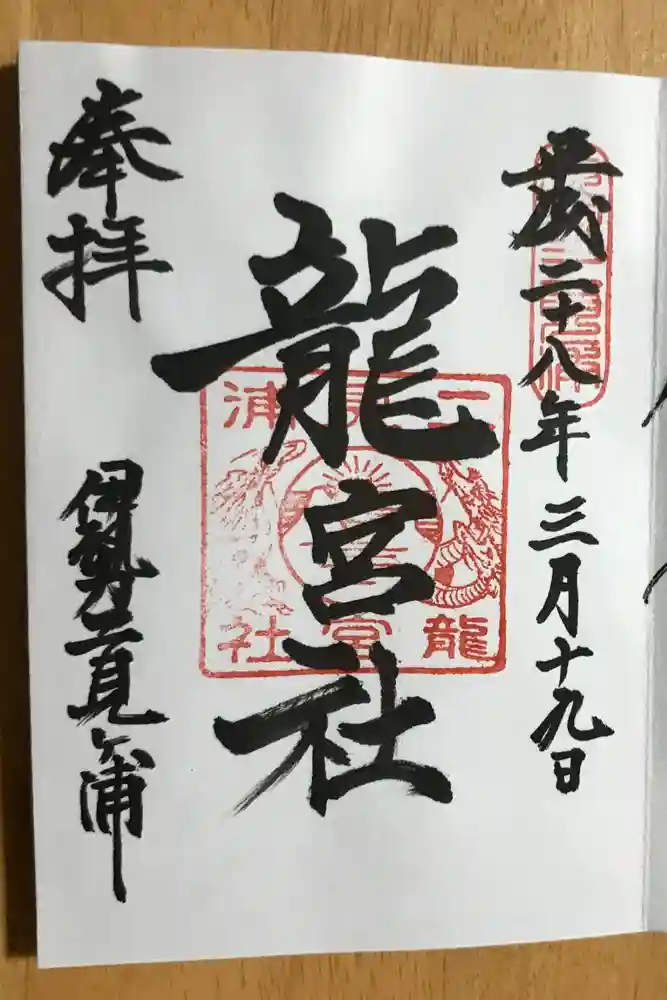 平成二十八年三月十九日
龍宮社
奉拝
伊勢二見ヶ浦
二見浦
龍宮社